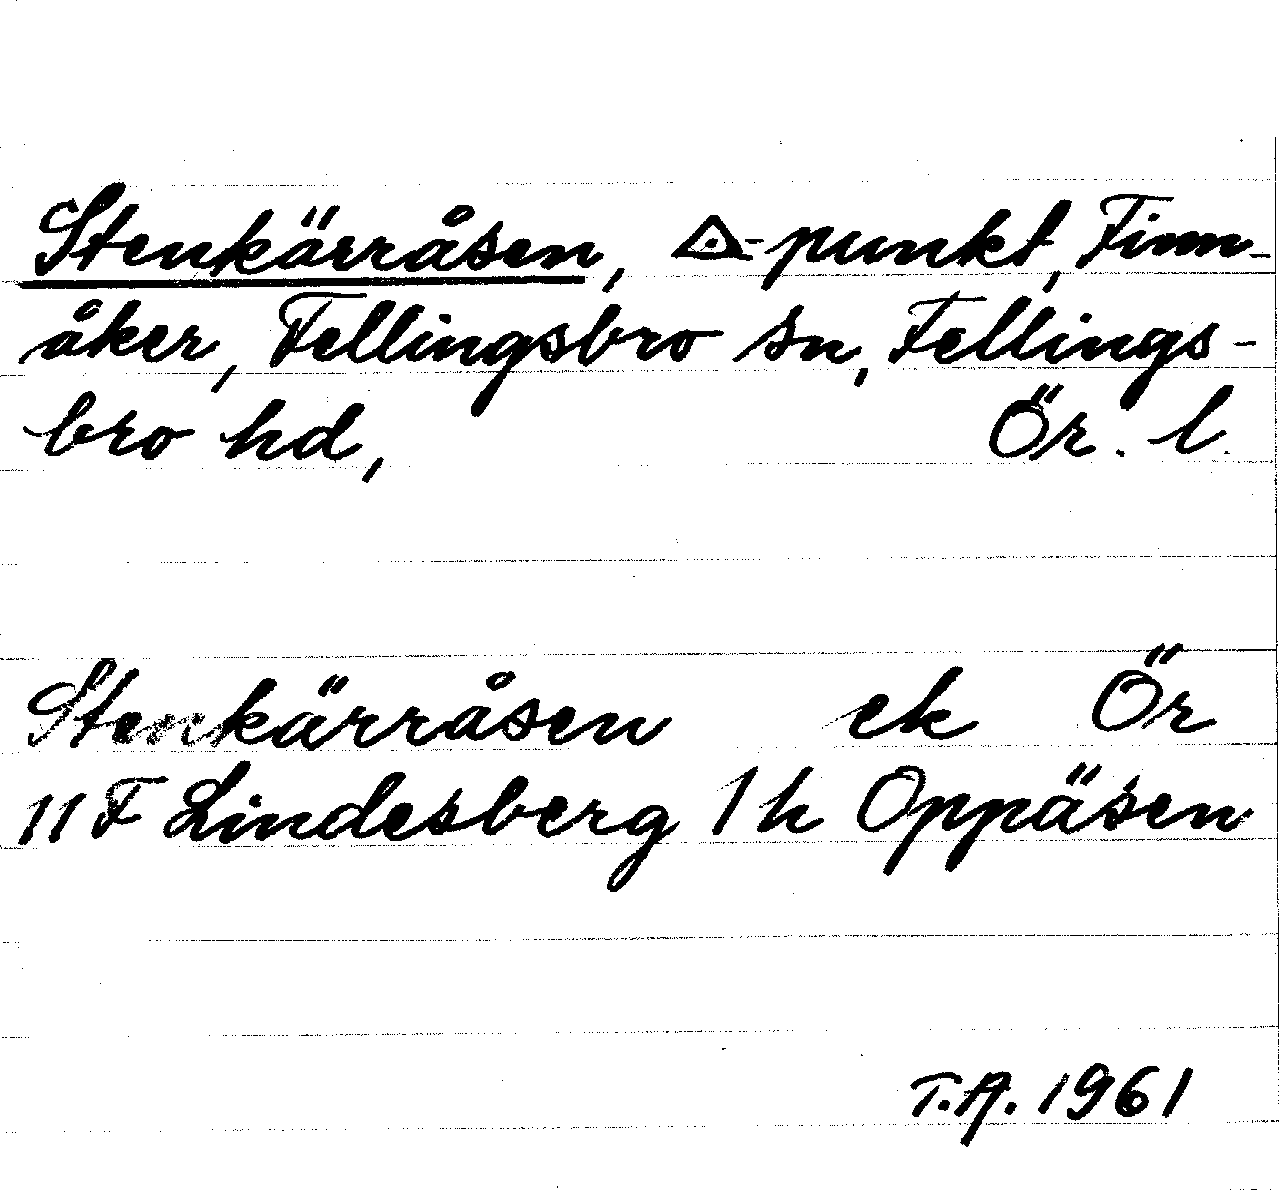 Stenkärråsen, △-punkt, Finn-
åker, Fellingsbro sn, Fellings-
bro hd, Ör. l.
Stenkärråsen ek Ör
11 F Lindesberg 1 h Oppåsen
T.A. 1961